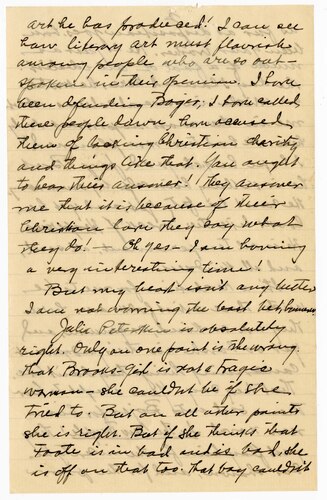 art he has produced! I can see
how literary art must flourish
among people who are so out-
spoken in their opinion. I have
been defending Boger; I have called
these people down, have accused
them of lacking Christian charity
and things like that. You ought
to hear their answer! They answer
me that it is because of their
Christian love they say what
they do! Oh yes - I am having
a very interesting time!
But my head isn't any better
I am not worrying the least bit,
Julia Peterkin is absolutely
right. Only on one point is she wrong.
that Brooks Girl is not a tragic
woman. She couldn't be if she
tried to. But on all other points
she is right. But if she thinks that
Foote is in bad and is bad, she
is off on that too. that boy couldn't